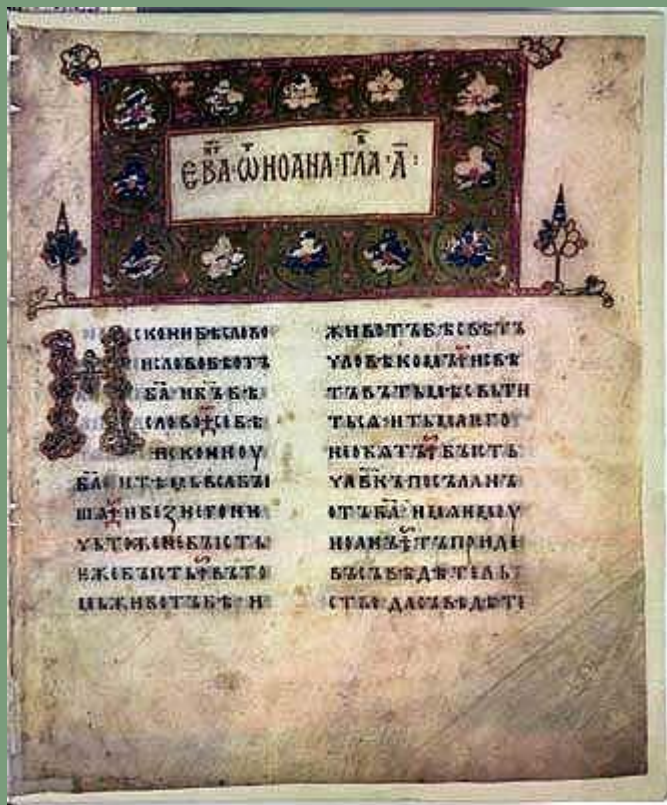 ЕВА·ѠИОАНА·ГЛА·А҃·
ИСКОНИБѢСЛОВО
ИСЛОВОБѢОТЪ
БА҃·ИБЪ҃БѢ
СЛОВО·СЕБѢ
ИСКОНИОУ
БА҃·ИТѢМЬВСѦБЫ
ШѦ·ИБЕЗНЕГОНИ
ЧЬТОЖЕНЕБЫСТЬ
ЕЖЕБЫСТЬ·ВЪТО
МЬЖИВОТЪБѢ·И
ЖИВОТЪБѢСВѢТЪ
ЧЛОВѢКОМЪ·ИСВѢ
ТЪВЪТЬМѢСВЬТИ
ТЬСѦ·ИТЬМАѤГО
НЕОБѦТЪ·БЫСТЬ
ЧЛ҃ВКЪПОСЪЛАНЪ
ОТЪБА҃·ИМѦѤМОУ
ИОАНЪ·ТЪПРИДЕ
ВЪСЪВѢДѢТЕЛЬ
СТВО·ДАСЪВѢДѢТЕ